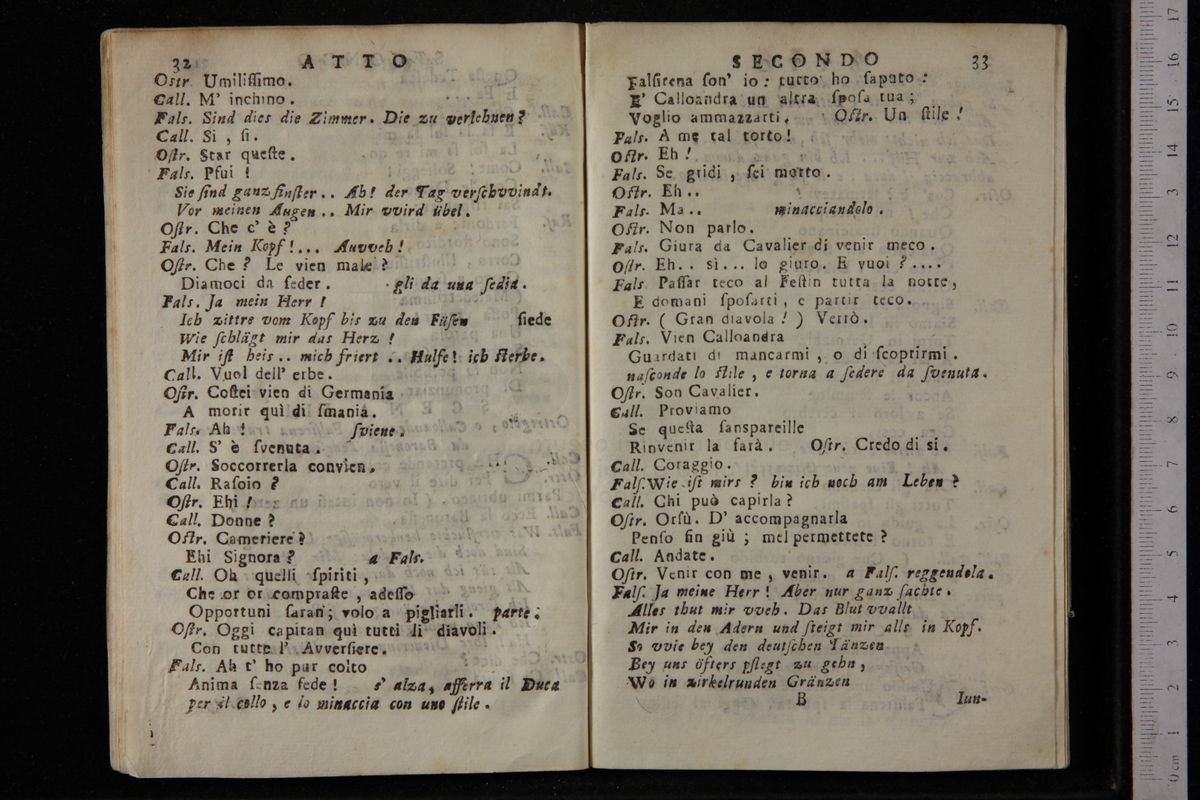 32 ATTO
Ostr. Umiliſſimo.
Call. M' inchino.
Fals. Sind dies die Zimmer. Die zu verlehnen?
Call. Si, ſi.
Oſtr. Star queſte.
Fals. Pfui!
Sie ſind ganz finſter.. Ah! der Tag verſchvvindt.
Vor meinen Augen.. Mir vvird übel.
Oſtr. Che c' è?
Fals. Mein Kopf!... Auvveh!
Oſtr. Che? Le vien male?
Diamoci da ſeder. gli da una ſedia.
Fals. Ja mein Herr!
Ich zittre vom Kopf bis zu den Füſen ſiede
Wie ſchlägt mir das Herz!
Mir iſt heis.. mich friert.. Hulfe! ich ſterbe.
Call. Vuol dell' erbe.
Oſtr. Coſtei vien di Germania
A morir quì di ſmania.
Fals. Ah! ſviene.
Call. S' è ſvenuta.
Oſtr. Soccorrerla convien.
Call. Raſoio?
Oſtr. Ehi!
Call. Donne?
Oſtr. Cameriere?
Ehi Signora? a Fals.
Call. Oh quelli ſpiriti,
Che or or compraſte, adeſſo
Opportuni ſaran; volo a pigliarli. parte.
Oſtr. Oggi capitan quì tutti li diavoli.
Con tutte l' Avverſiere.
Fals. Ah t' ho pur colto
Anima ſenza fede! s' alza, afferra il Duca
per il collo, e lo minaccia con uno ſtile.
SECONDO 33
Falſirena ſon' io: tutto ho ſaputo:
E' Calloandra un altra ſpoſa tua;
Voglio ammazzarti. Oſtr. Un ſtile!
Fals. A me tal torto!
Oſtr. Eh!
Fals. Se gridi, ſei morto.
Oſtr. Eh..
Fals. Ma.. minacciandolo.
Oſtr. Non parlo.
Fals. Giura da Cavalier di venir meco.
Oſtr. Eh.. sì... lo giuro. E vuoi?....
Fals. Paſſar teco al Feſtin tutta la notte,
E domani ſpoſarti, e partir teco.
Oſtr. (Gran diavola!) Verrò.
Fals. Vien Calloandra
Guardati di mancarmi, o di ſcoprirmi.
naſconde lo ſtile, e torna a ſedere da ſvenuta.
Oſtr. Son Cavalier.
Call. Proviamo
Se queſta ſanspareille
Rinvenir la farà. Oſtr. Credo di si.
Call. Coraggio.
Falſ. Wie iſt mirs? bin ich noch am Leben?
Call. Chi può capirla?
Oſtr. Orſù. D' accompagnarla
Penſo fin giù; mel permettete?
Call. Andate.
Oſtr. Venir con me, venir. a Falſ. reggendola.
Falſ. Ja meine Herr! Aber nur ganz ſachte.
Alles thut mir vveh. Das Blut vvallt
Mir in den Adern und ſteigt mir alls in Kopf.
So vvie bey den deutſchen Tänzen
Bey uns öfters pflegt zu gehn,
Wo in zirkelrunden Gränzen
B Iun-